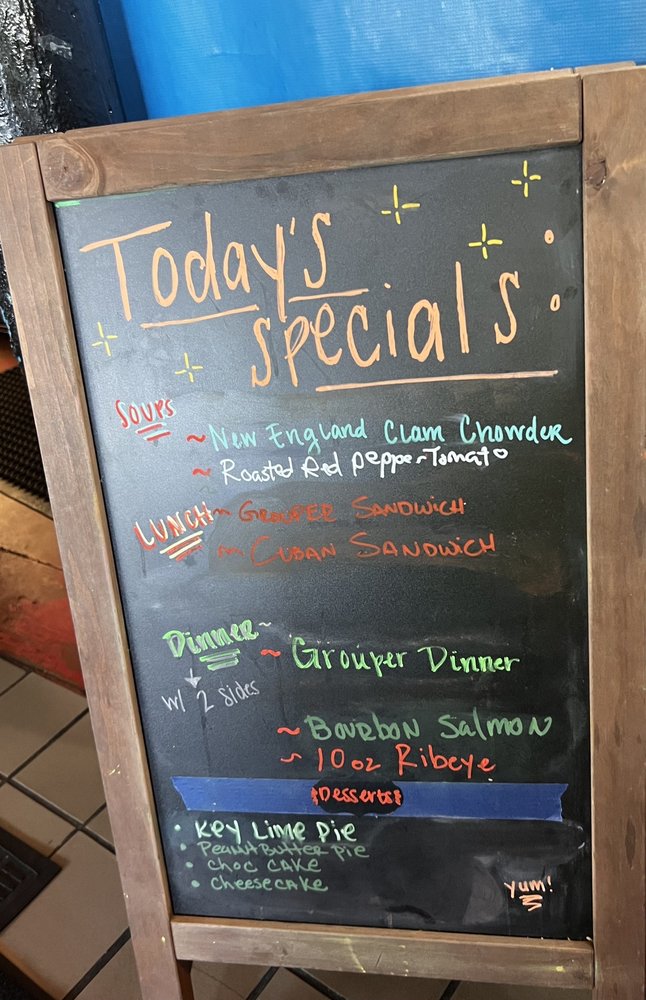 Today's
specials:
Soups
~ New England Clam Chowder
~ Roasted Red Pepper Tomato
LUNCH ~ GROUPER SANDWICH
~ CUBAN SANDWICH
Dinner ~
~ Grouper Dinner
w/ 2 sides
~ Bourbon Salmon
~ 10oz Ribeye
Desserts
• Key Lime Pie
• Peanut Butter Pie
• Choc CAKE
• CheeseCAKE
yum!